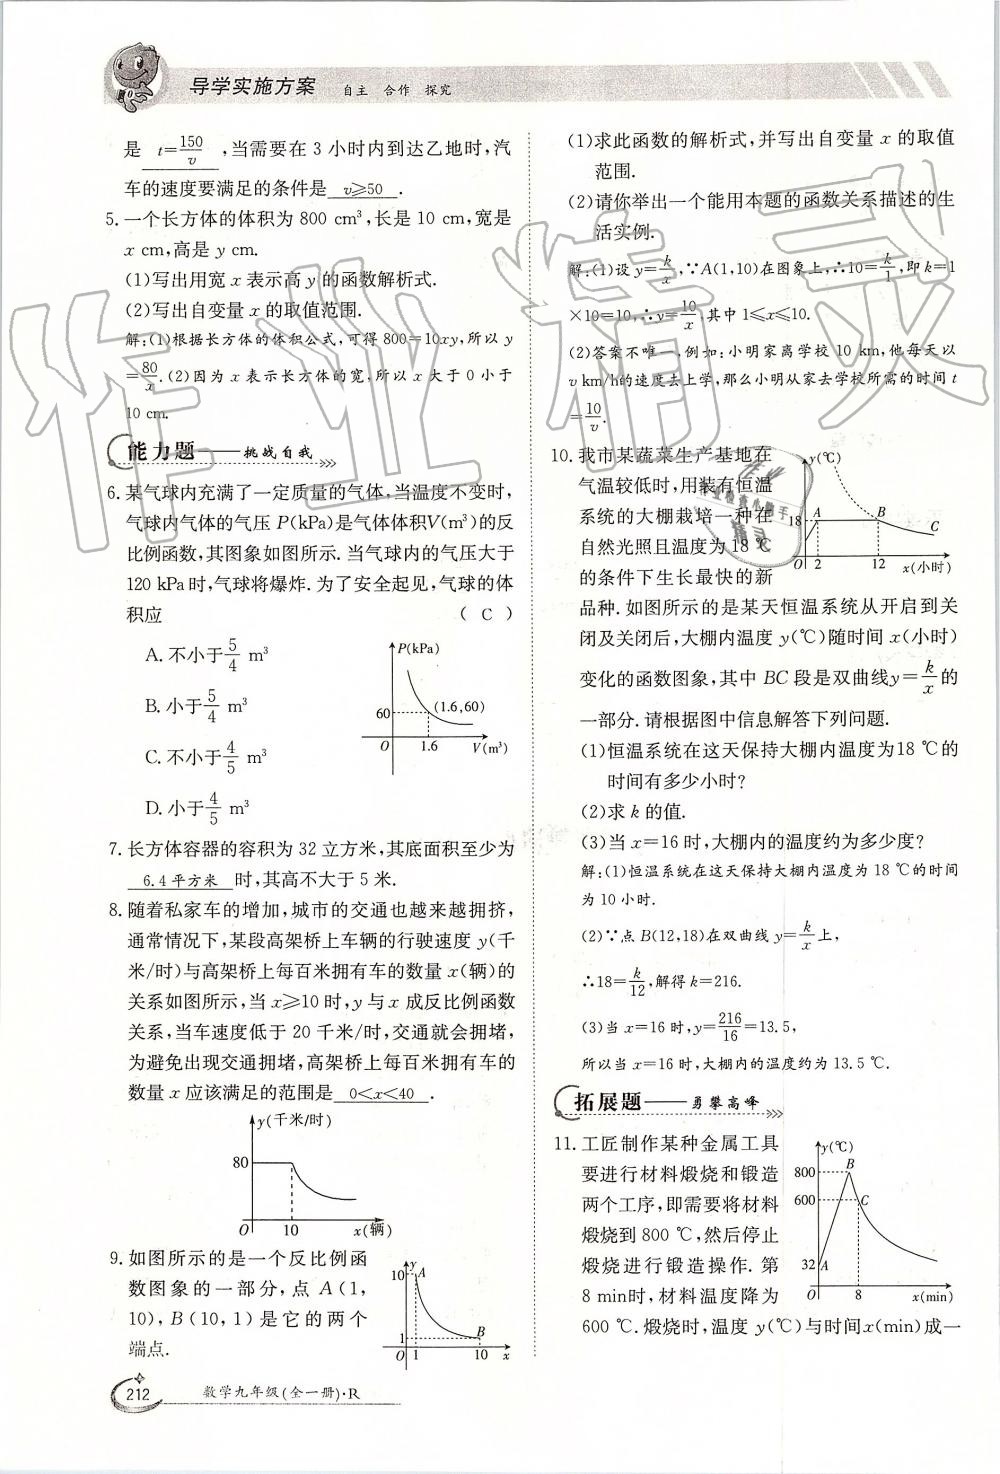 导学实施方案 自主 合作 探究
是 t=150/v ,当需要在 3 小时内到达乙地时,汽
车的速度要满足的条件是 v≥50 .
5. 一个长方体的体积为 800 cm³,长是 10 cm,宽是
x cm,高是 y cm.
(1)写出用宽 x 表示高 y 的函数解析式.
(2)写出自变量 x 的取值范围.
解:(1)根据长方体的体积公式,可得 800=10xy,所以 y
=80/x.(2)因为 x 表示长方体的宽,所以 x 大于 0 小于
10 cm.
能力题——挑战自我
6. 某气球内充满了一定质量的气体,当温度不变时,
气球内气体的气压 P(kPa)是气体体积V(m³)的反
比例函数,其图象如图所示. 当气球内的气压大于
120 kPa时,气球将爆炸. 为了安全起见,气球的体
积应 ( C )
A. 不小于5/4 m³
B. 小于5/4 m³
C. 不小于4/5 m³
D. 小于4/5 m³
P(kPa)
60 (1.6,60)
O 1.6 V(m³)
7. 长方体容器的容积为 32 立方米,其底面积至少为
6.4 平方米 时,其高不大于 5 米.
8. 随着私家车的增加,城市的交通也越来越拥挤,
通常情况下,某段高架桥上车辆的行驶速度 y(千
米/时)与高架桥上每百米拥有车的数量 x(辆)的
关系如图所示,当 x≥10 时,y 与 x 成反比例函数
关系,当车速度低于 20 千米/时,交通就会拥堵,
为避免出现交通拥堵,高架桥上每百米拥有车的
数量 x 应该满足的范围是 0<x<40 .
y(千米/时)
80
O 10 x(辆)
9. 如图所示的是一个反比例函
数图象的一部分,点 A(1,
10),B(10,1)是它的两个
端点.
y
10 A
1 B
O 1 10 x
212 数学九年级(全一册)·R
(1)求此函数的解析式,并写出自变量 x 的取值
范围.
(2)请你举出一个能用本题的函数关系描述的生
活实例.
解:(1)设 y=k/x,∵A(1,10)在图象上,∴10=k/1,即 k=1
×10=10,∴y=10/x,其中 1≤x≤10.
(2)答案不唯一,例如:小明家离学校 10 km,他每天以
v km/h的速度去上学,那么小明从家去学校所需的时间 t
=10/v.
10. 我市某蔬菜生产基地在
气温较低时,用装有恒温
系统的大棚栽培一种在
自然光照且温度为 18 ℃
的条件下生长最快的新
品种. 如图所示的是某天恒温系统从开启到关
闭及关闭后,大棚内温度 y(℃)随时间 x(小时)
变化的函数图象,其中 BC 段是双曲线y=k/x的
一部分. 请根据图中信息解答下列问题.
y(℃)
18 A B C
O 2 12 x(小时)
(1)恒温系统在这天保持大棚内温度为18 ℃的
时间有多少小时?
(2)求 k 的值.
(3)当 x=16 时,大棚内的温度约为多少度?
解:(1)恒温系统在这天保持大棚内温度为 18 ℃的时间
为 10 小时.
(2)∵点 B(12,18)在双曲线 y=k/x上,
∴18=k/12,解得 k=216.
(3)当 x=16 时,y=216/16=13.5,
所以当 x=16 时,大棚内的温度约为 13.5 ℃.
拓展题——勇攀高峰
11. 工匠制作某种金属工具
要进行材料煅烧和锻造
两个工序,即需要将材料
煅烧到 800 ℃,然后停止
煅烧进行锻造操作. 第
8 min时,材料温度降为
600 ℃. 煅烧时,温度 y(℃)与时间x(min)成一
y(℃)
800 B
600 C
32 A
O 8 x(min)
作业精灵
作业
精灵